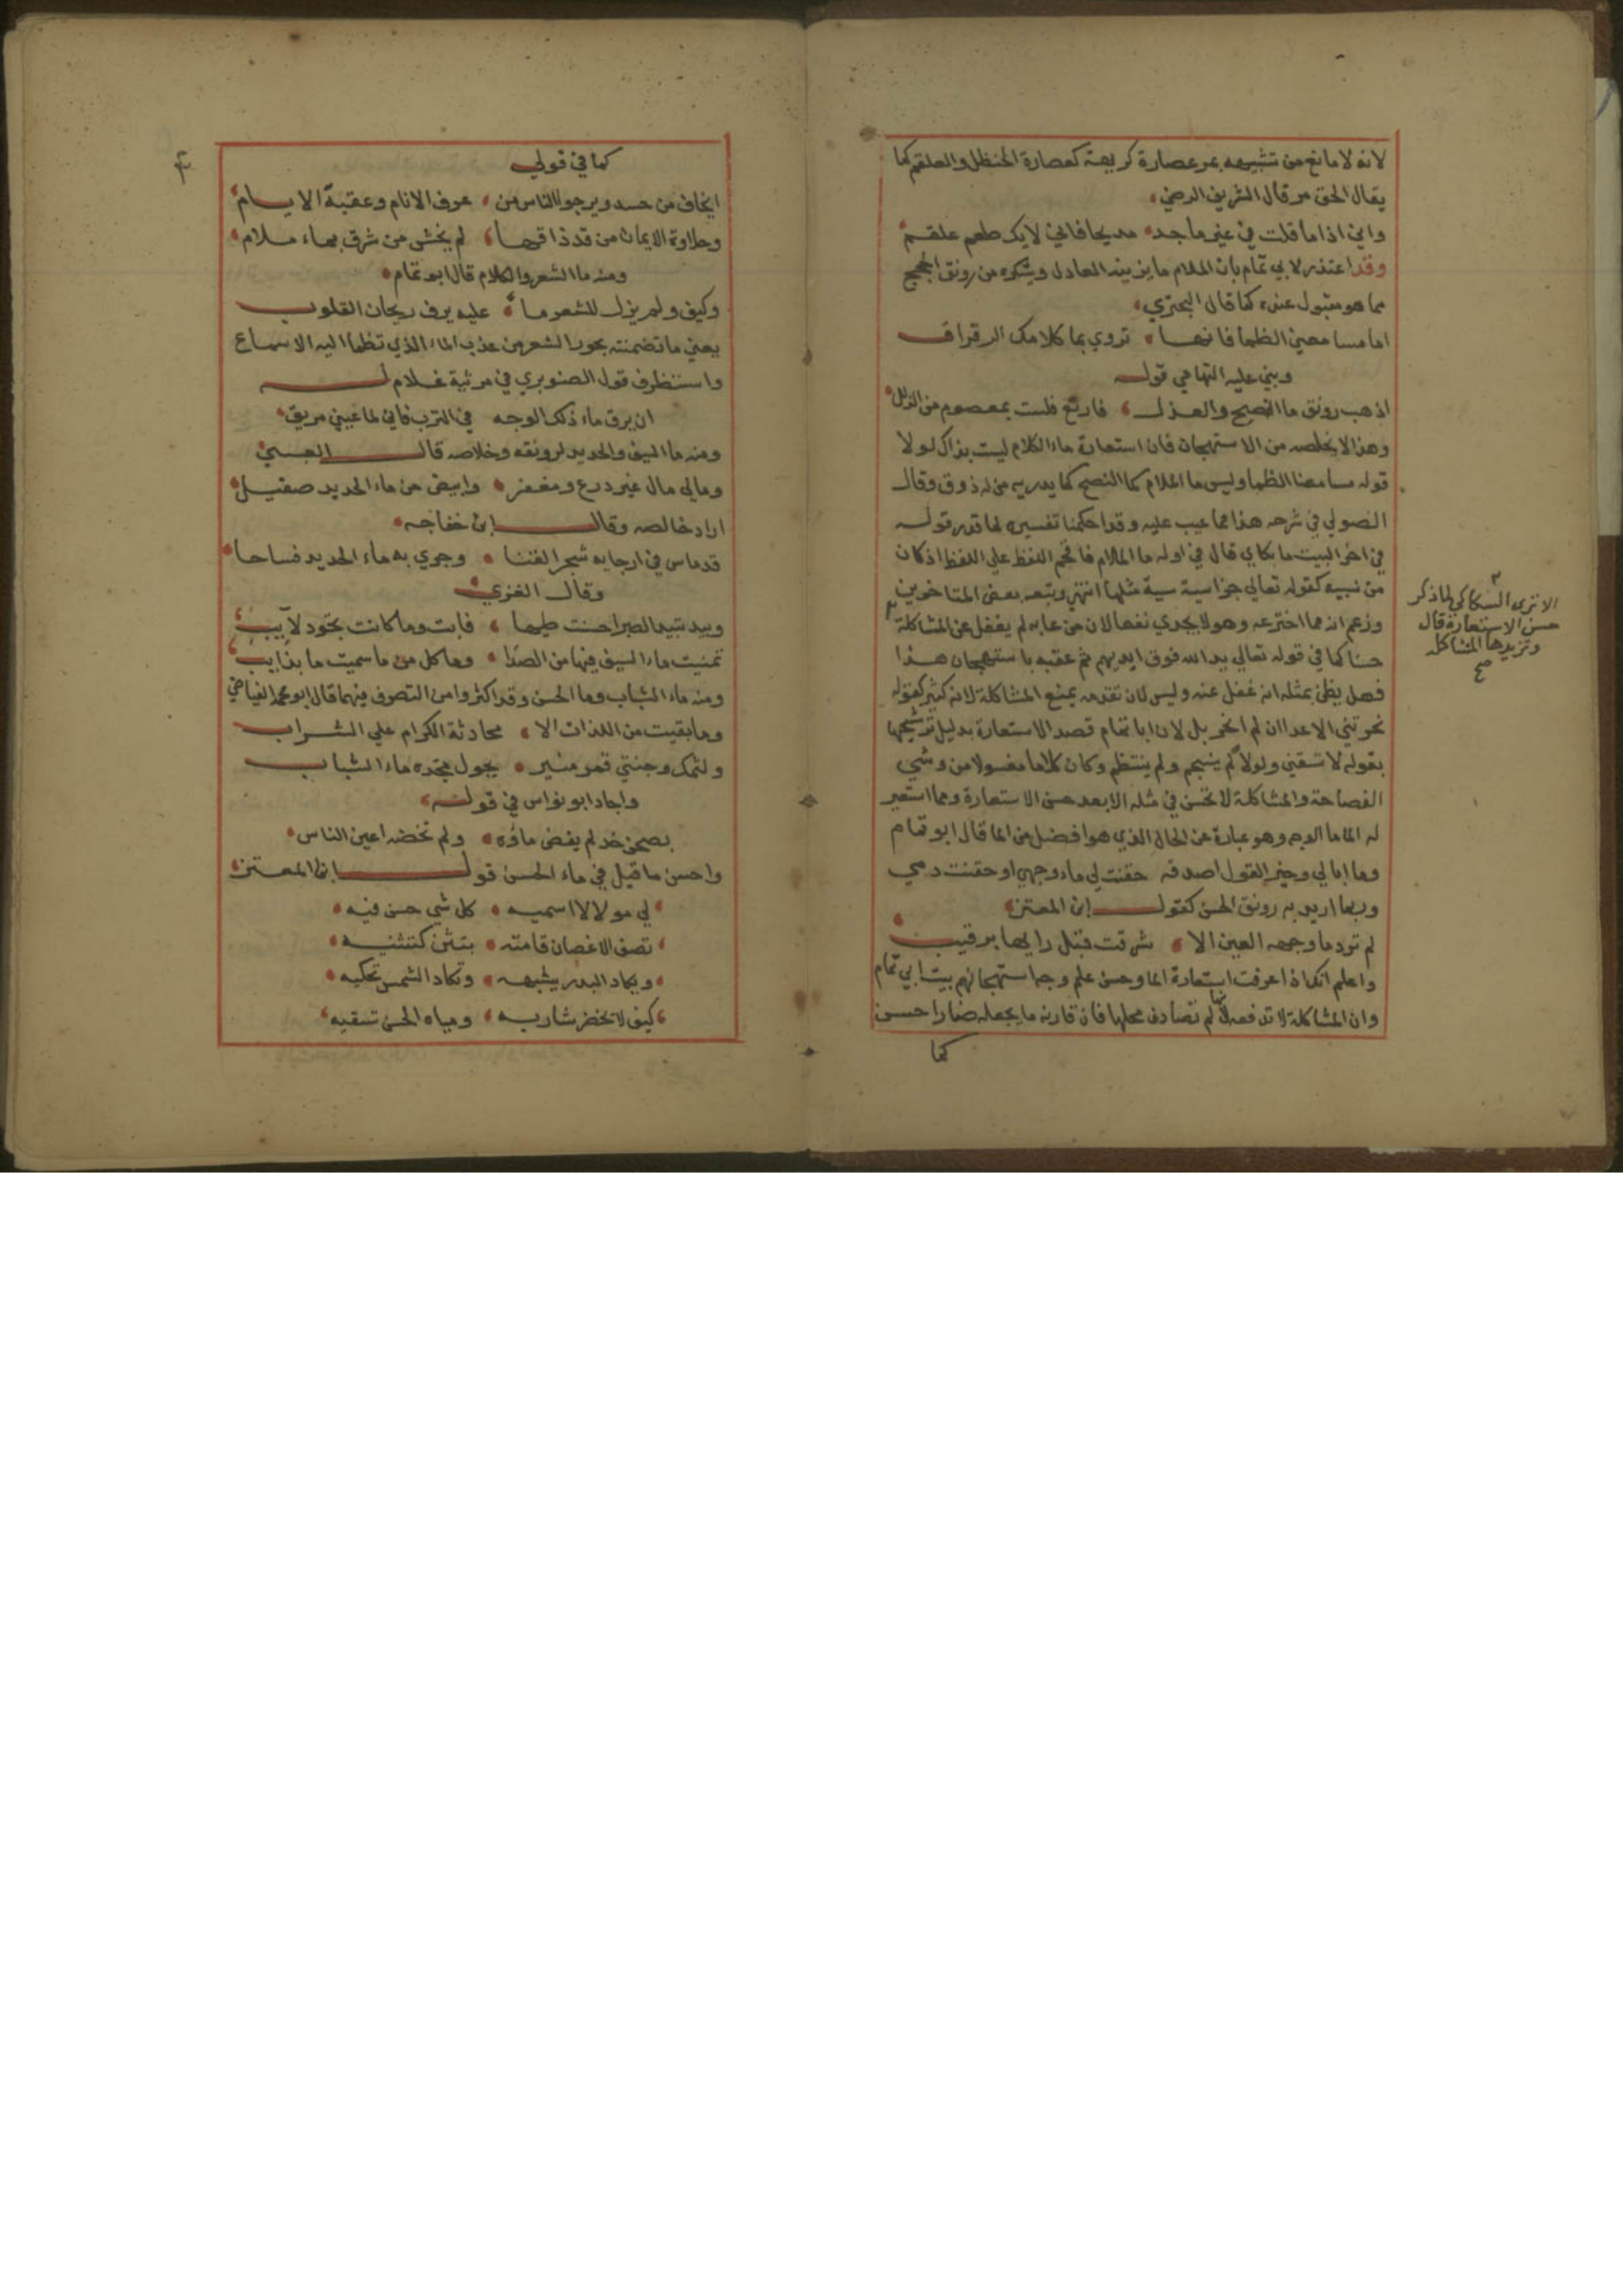 لانه لا مانع من تشبيهه بمر عصارة كريهة كعصارة الحنظل والعلقم كما
يقال الحق مر قال الشريف الرضي
واني اذا ما قلت في غير ماجد مديحا فاني لايك طعم علقم
وقد اعتذر لابي تمام بان الملام ما يزينه العاذل ويشكره من رونق الحجج
مما هو مقبول عنده كما قال البحتري
اما مسامعنا الظما فانها تروي بما كلامك الرقراق
وبني عليه التهامي قوله
اذهب رونق ما النصح والعذل فارتع فلست بمعصوم من الزلل
وهذا لا يخلصه من الاستهجان فان استعارة ماء الكلام ليست بذاك لولا
قوله مسامعنا الظما وليس ما الملام كما النصح كما يدريه من له ذوق وقال
الصولي في شرحه هذا مما عيب عليه وقد احكمنا تفسيره لما قدر قوله
في اخر البيت ما بكاي قال في اوله ما الملام فاقحم اللفظ علي اللفظ اذ كان
من نسبيه كقوله تعالي جزا سيية سيية مثلها انتهي وتبعه بعض المتاخرين
وزعم انه مما اخترعه وهو لا يجدي نفعا لان من عابه لم يغفل عن المشاكلة
حسنا كما في قوله تعالي يد الله فوق ايديهم ثم عقبه باستهجان هذا
فهل يظن بمثله انه غفل عنه وليس لان تقدمه يمنع المشاكلة لانه كثير كقوله
نحو تبني الاعدا ان لم انحر بل لان ابا تمام قصد الاستعارة بدليل ترشيحها
بقوله لا تسقني ولولا لم ينسجم ولم ينتظم وكان كلاما مغسولا من وشي
الفصاحة والمشاكلة لا تحسن في مثله الا بعد حسن الاستعارة ومما استعير
له الما ما الوجه وهو عبارة عن الحال الذي هو افضل من الما قال ابو تمام
وما ابالي وخير القول اصدقه حقنت لي ماء وجهي او حقنت دمي
وربما اريد به رونق الحسن كقول ابن المعتز
لم ترد ما وجهه العين الا شرقت قبل رايها برقيب
واعلم انك اذا عرفت استعارة الما وحسن علم وجه استهجانهم بيت ابي تمام
وان المشاكلة لا تدفعه لانها لم تصادف محلها فان قارنه ما يجعله ضارا حسن
كما
الا تري السكاكي لما ذكر
حسن الاستعارة قال
وتزيدها المشاكلة
صح
كما في قولي
ايخاف من حسد ويرجو الناس من عرف الانام وعقبة الايام
وحلاوة الايمان من قد ذاقها لم يخشى من شرق بماء ملام
ومنه ما الشعر والكلام قال ابو تمام
وكيف ولم يزل للشعر ماء عليه يرف ريحان القلوب
يعني ما تضمنته بحور الشعر من عذب الماء الذي تظما اليه الاسماع
واستظرف قول الصنوبري في مرثية غلام له
ان يرق ماء ذلك الوجه في الترب فاني لما عيني مريق
ومنه ما السيف والحديد لرونقه وخلاصه قال العبسي
ومالي مال غير درع ومغفر وابيض من ماء الحديد صقيل
اراد خالصه وقال ابن خفاجه
قد ماس في ارجايه شجر القنا وجري به ماء الحديد فساحا
وقال الغزي
وبيد تبيد الصبر احسنت طيها فابت وما كانت تجود لآيب
تمنيت ماء السيف فيها من الصدا وما كل من ما سميت ما بذايب
ومنه ماء الشباب وما الحسن وقد اكثروا من التصرف فيهما قال ابو محمد الفياضي
وما بقيت من اللذات الا محادثة الكرام علي الشراب
ولثمك وجنتي قمر منير يجول بخده ماء الشباب
واجاد ابو نواس في قوله
بصحن خد لم يغض ماؤه ولم تخضه اعين الناس
واحسن ما قيل في ماء الحسن قول ابن المعتز
لي مولا لا اسميه كل شي حسن فيه
تصف الاغصان قامته بتثن كتثنيه
ويكاد البدر يشبهه وتكاد الشمس تحكيه
كيف لا تخضر شاربه ومياه الحسن تسقيه